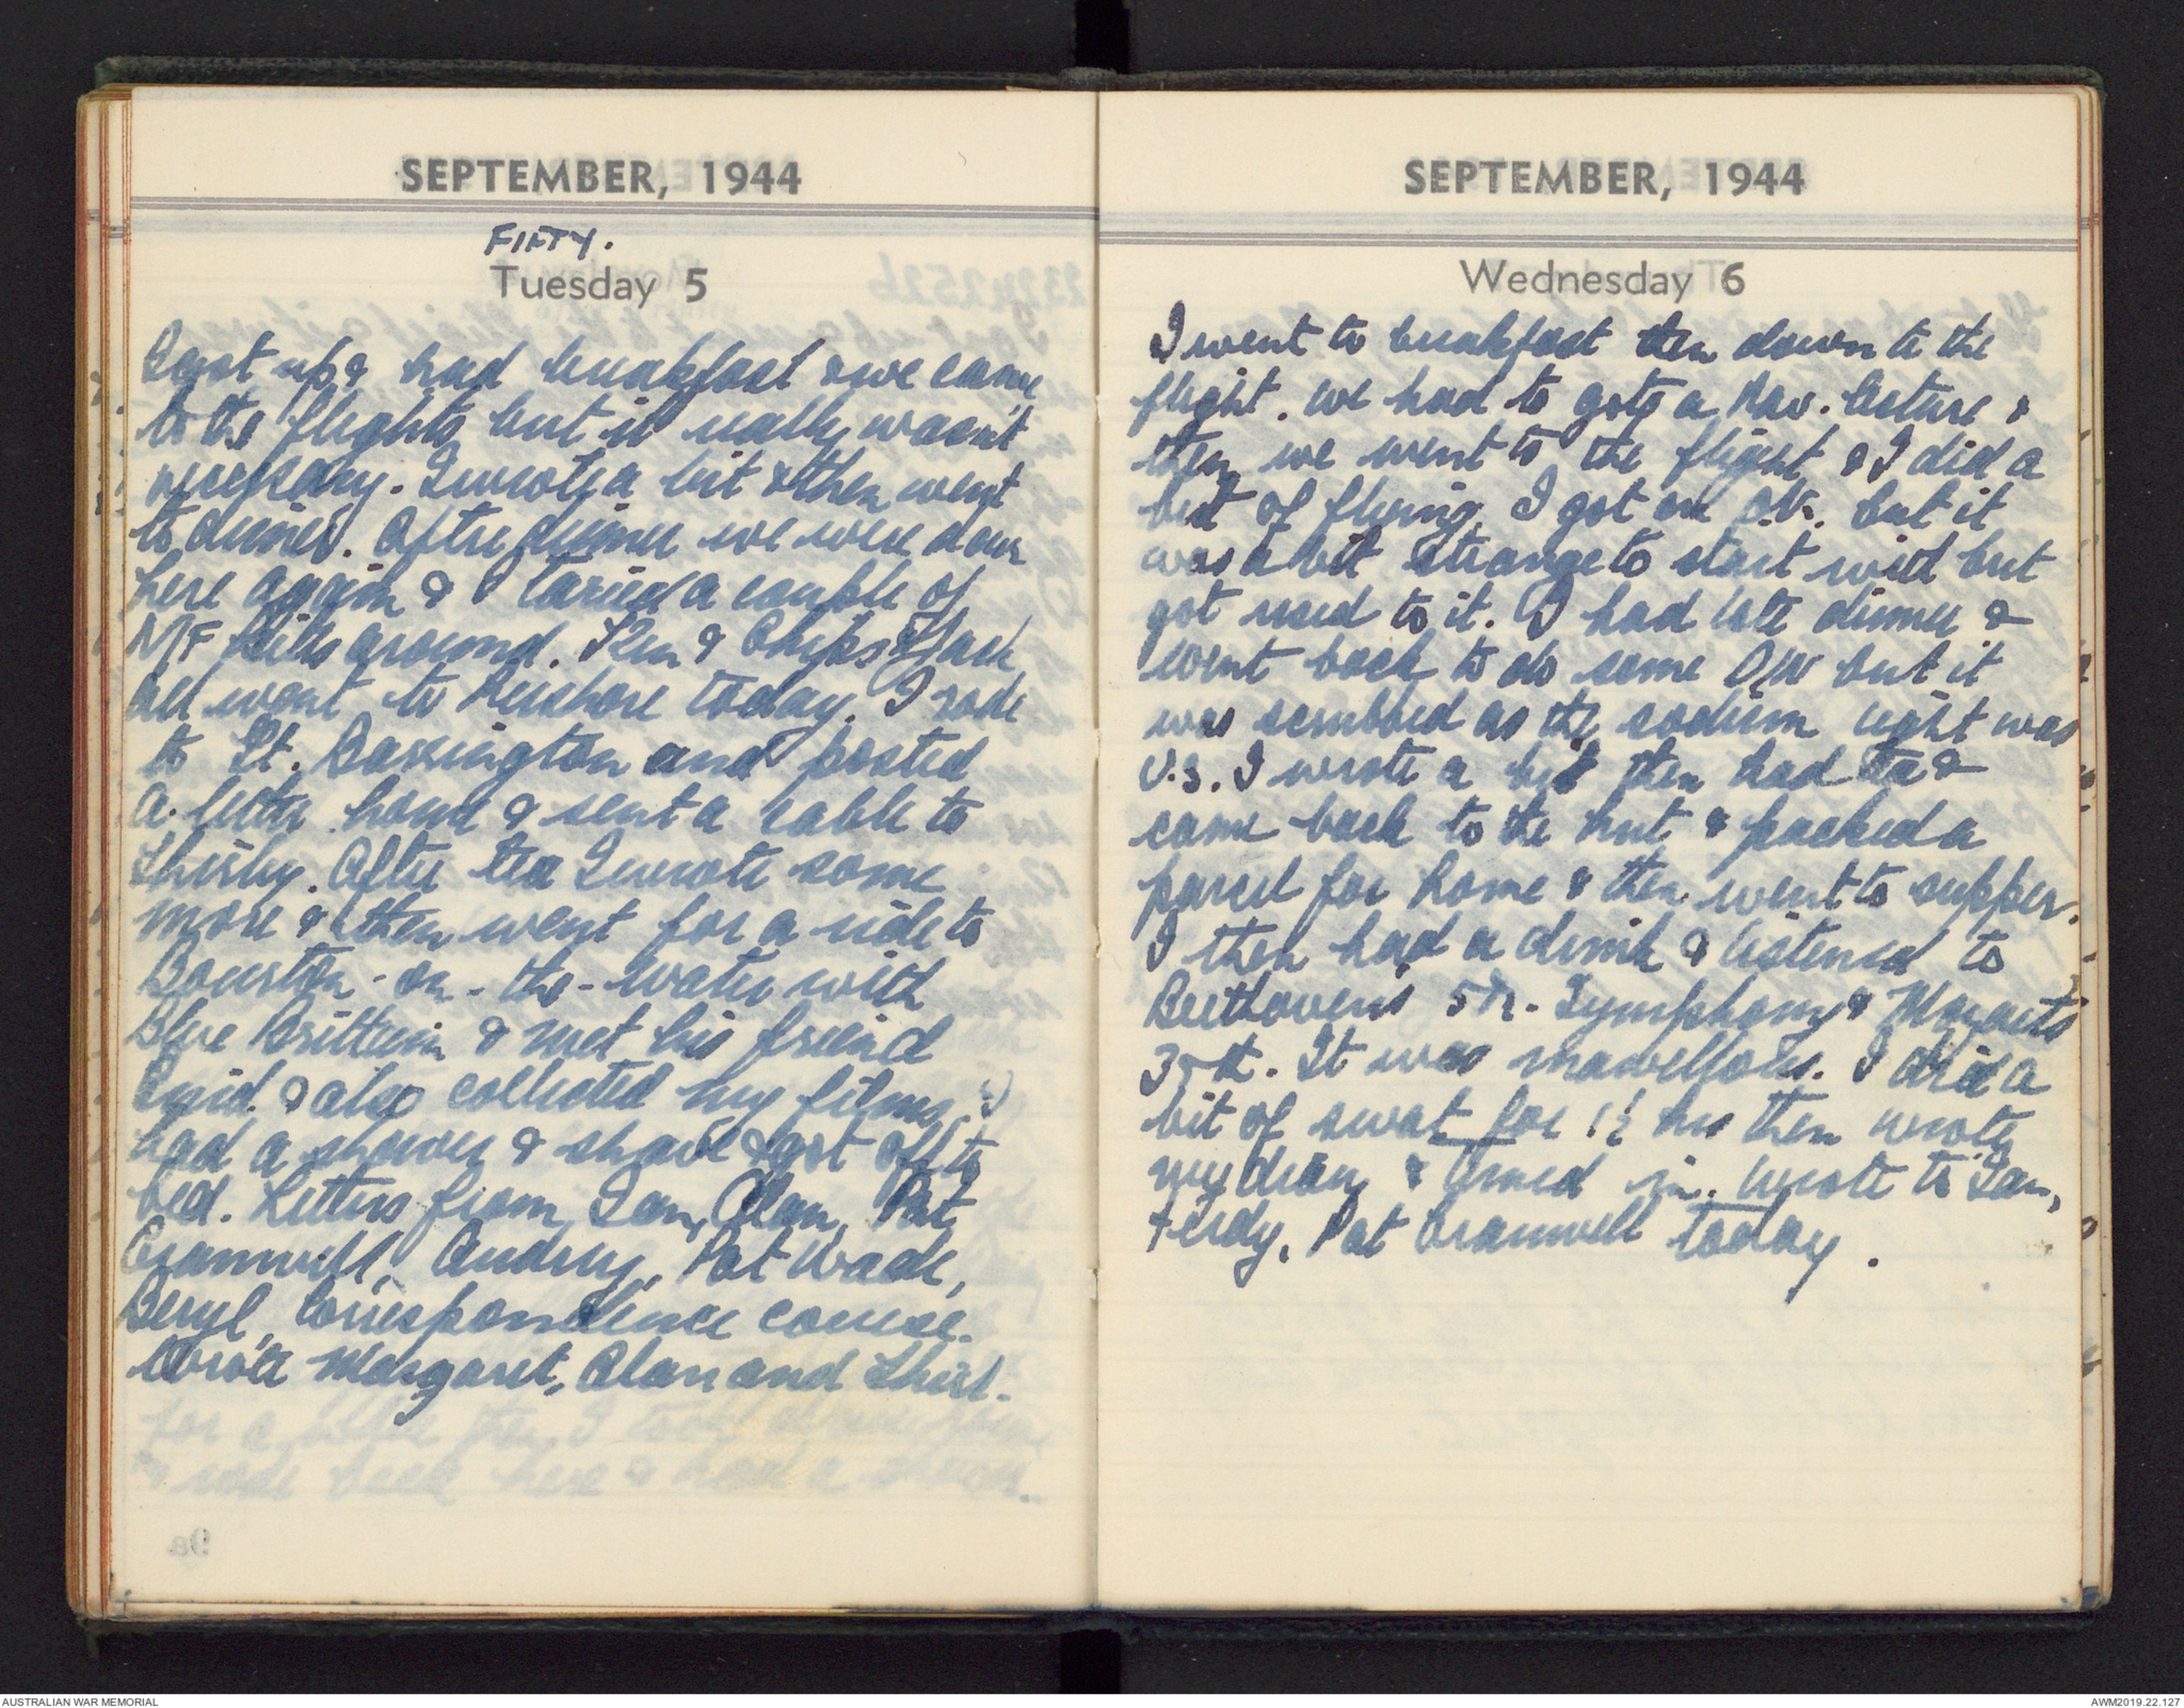 SEPTEMBER, 1944
FIFTY.
Tuesday 5
I got up & had breakfast & we came
to the flights but it really wasn't
necessary. I wrote a bit & then went
to dinner. After dinner we were down
here again & I taxied a couple of
around. Ken & Chips & Jack
all went to today. I rode
to Gt. Barrington and posted
a letter home & sent a cable to
Shirley. After tea I wrote some
more & then went for a ride to
Bourton-on-the-Water with
Blue Brittain & met his freind
Enid & also collected my films. I
had a shower & shave & got off to
bed. Letters from Ian, Alan, Pat
Cranwell, Audrey, Pat Wade,
Beryl, Correspondence course.
Wrote Margaret, Alan and Shirl.
SEPTEMBER, 1944
Wednesday 6
I went to breakfast then down to the
flight. We had to go to a Nav. lecture &
then we went to the flight & I did a
bit of flying. I got on O.K. but it
was a bit strange to start with but
got used to it. I had late dinner &
went back to do some D/N but it
was scrubbed as the sodium light was
U.S. I wrote a bit then had tea &
came back to the hut & packed a
parcel for home & then went to supper.
I then had a drink & listened to
Beethoven's 5th. Symphony & Mozarts
35th. It was marvellous. I did a
bit of swat for 1½ hrs then wrote
my diary & turned in. Wrote to Ian,
Ferdy, Pat Cranwell today.
AUSTRALIAN WAR MEMORIAL
AWM2019.22.127